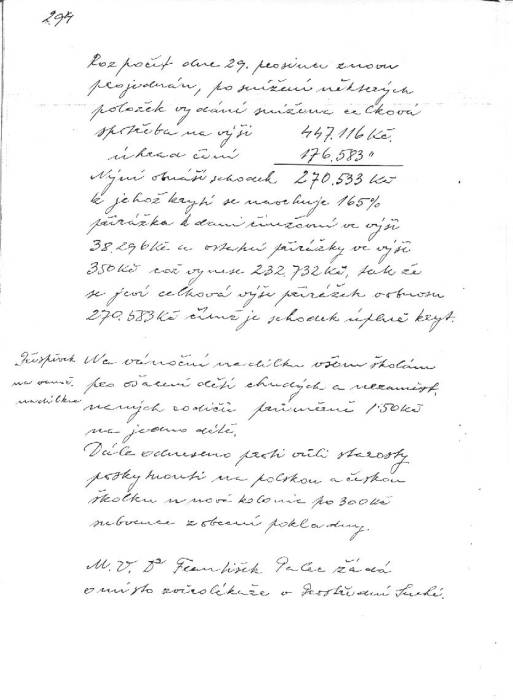 294
Rozpočet dne 29. prosince znovu
projednán, po snížení některých
položek vydání snížena celková
spotřeba na výši 447.116 Kč.
úhrada činí 176.583 "
Nyní obnáší schodek 270.533 Kč
k jehož krytí se navrhuje 165%
přirážka k dani činžovní ve výši
38.296 Kč a ostatní přirážky ve výši
350 Kč což vynese 232.732 Kč, tak že
se jeví celková výše přirážek obnosu
270.583 Kč čímž je schodek úplně kryt.
Příspěvek
na vánoč.
nadílku
Na vánoční nadílku všem školám
pro ošacení dětí chudých a nezaměst.
naných rodičů průměrně 1.50 Kč
na jedno dítě.
Dále odneseno proti vůli starosty
poskytnouti na polskou a českou
školku v nové kolonie po 300 Kč
subvence z obecní pokladny.
M. V. Dr František Palec žádá
o místo zvěrolékaře v Prostřední Suché.